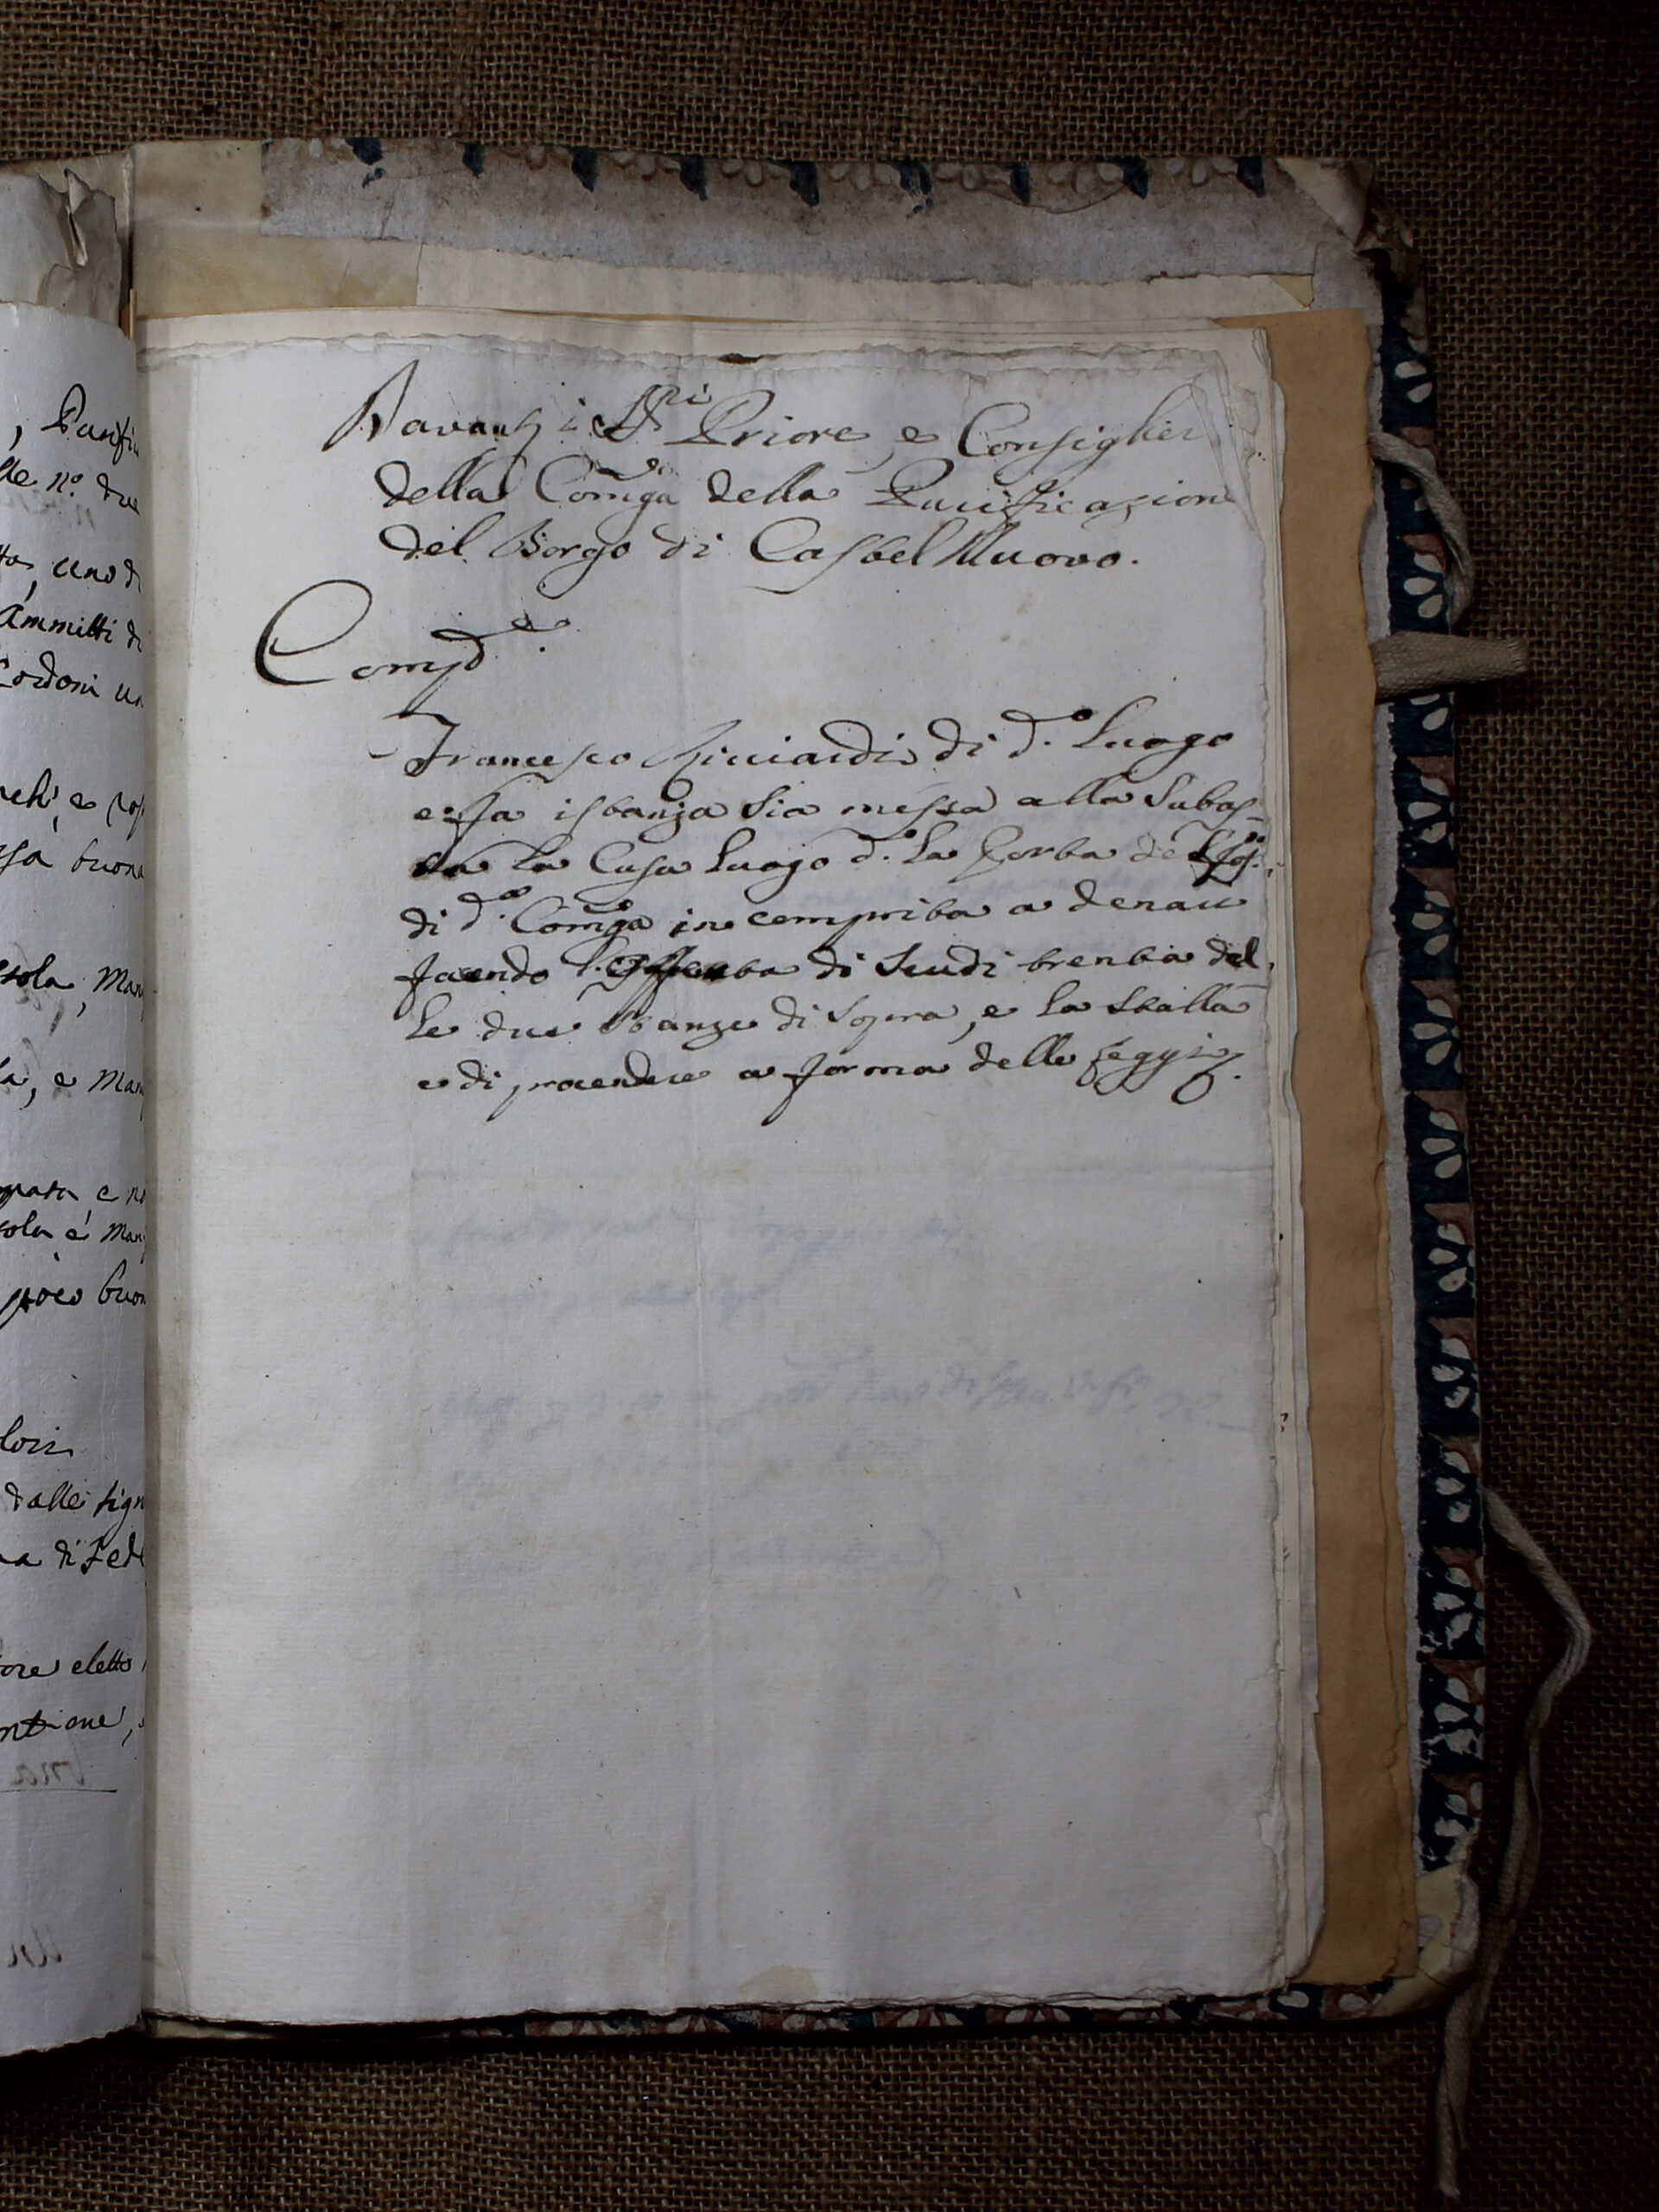 , Purifi
lle n.º due
uno di
Ammitti di
Cordoni un
buona
sola, Man
a, e Man
e no
sola e Man
poco buon
lori
dalli sign
a di Fede
ore eletto
ntione,
Davanti i SS.ri Priore, e Consiglieri
della Comp.a della Purificazione
del Borgo di Castel Nuovo.
Comp.e
Francesco Ricciardi, di d.o Luogo
e fa istanza sia messa alla Subas-
ta la Casa Luogo d.o La Porta de
di d.a Comp.a in comprita a denari
facendo l'offerta di Scudi trenta del
le due Stanze di Sopra, e la Stalla
e di procedere a forma delle Leggi